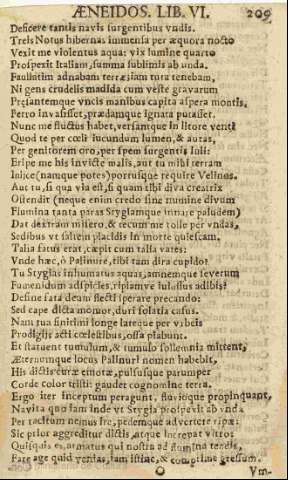 ÆNEIDOS. LIB. VI. 209
Deficere tantis navis surgentibus vndis.
Treis Notus hibernas immensa per æquora nocto
Vexit me violentus aqua: vix lumine quarto
Prospexit Italiam, summa sublimis ab unda.
Paullatim adnabam terræ: jam tuta tenebam,
Ni gens crudelis madida cum veste gravarum
Prensantemque vncis manibus capita aspera montis,
Ferro invasisset, prædamque ignara putasset.
Nunc me fluctus habet, versantque in litore venti
Quod te per cœli jucundum lumen, & auras,
Per genitorem oro, per spem surgentis Iuli:
Eripe me his invicte malis, aut tu mihi terram
Inijce (namque potes) portusque require Velinos.
Aut tu, si qua via est, si quam tibi diva creatrix
Ostendit (neque enim credo sine numine divum
Flumina tanta paras Stygiamque innare paludem)
Dat dextram misero, & tecum me tolle per vndas,
Sedibus vt saltem placidis in morte quiescam.
Talia fatus erat, cœpit cum talia vates:
Vnde hæc, ô Palinure, tibi tam dira cupido?
Tu Stygias inhumatus aquas, amnemque severum
Eumenidum adspicies, ripamve iniussus adibis?
Desine fata deum flecti sperare precando:
Sed cape dicta memor, duri solatia casus.
Nam tua finitimi longe lateque per vrbeis
Prodigiis acti cœlestibus, ossa piabunt.
Et statuent tumulum, & tumulo sollemnia mittent,
Æternumque locus Palinuri nomen habebit,
His dictis curæ emotæ, pulsusque parumper
Corde dolor tristi: gaudet cognomine terra.
Ergo iter inceptum peragunt, fluvioque propinquant,
Navita quos jam inde vt Stygia prospexit ab vnda
Per tacitum nemus ire, pedemque advertere ripæ:
Sic prior aggreditur dictis, atque increpat vltro:
Quisquis es, armatus qui nostra ad flumina tendis,
Fare age quid venias, jam istinc, & comprime gressum.
O Vm-